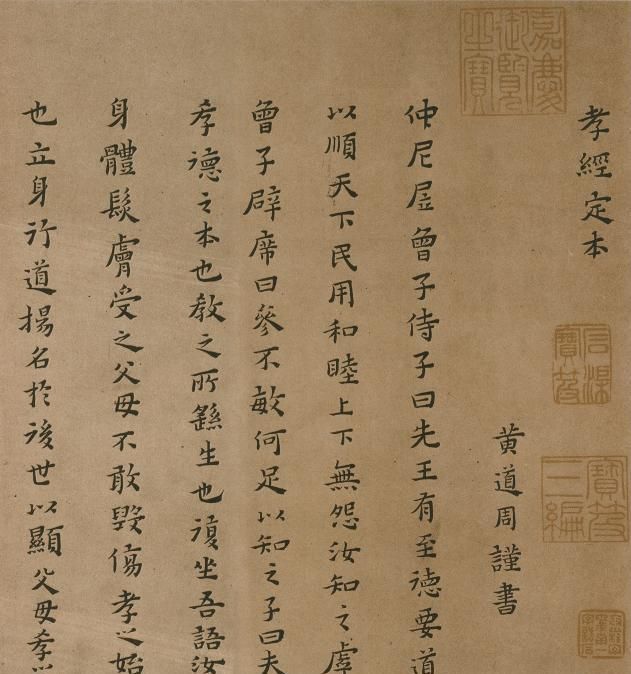 孝經定本
黄道周謹書
仲尼凥曾子侍子曰先王有至徳要道
以順天下民用和睦上下無怨汝知之虖
曾子辟席曰參不敏何足以知之子曰夫
孝德之本也敎之所繇生也復坐吾語汝
身體髮膚受之父母不敢毀傷孝之始
也立身行道揚名於後世以顯父母孝
嘉慶御覽之寶
寶笈三編